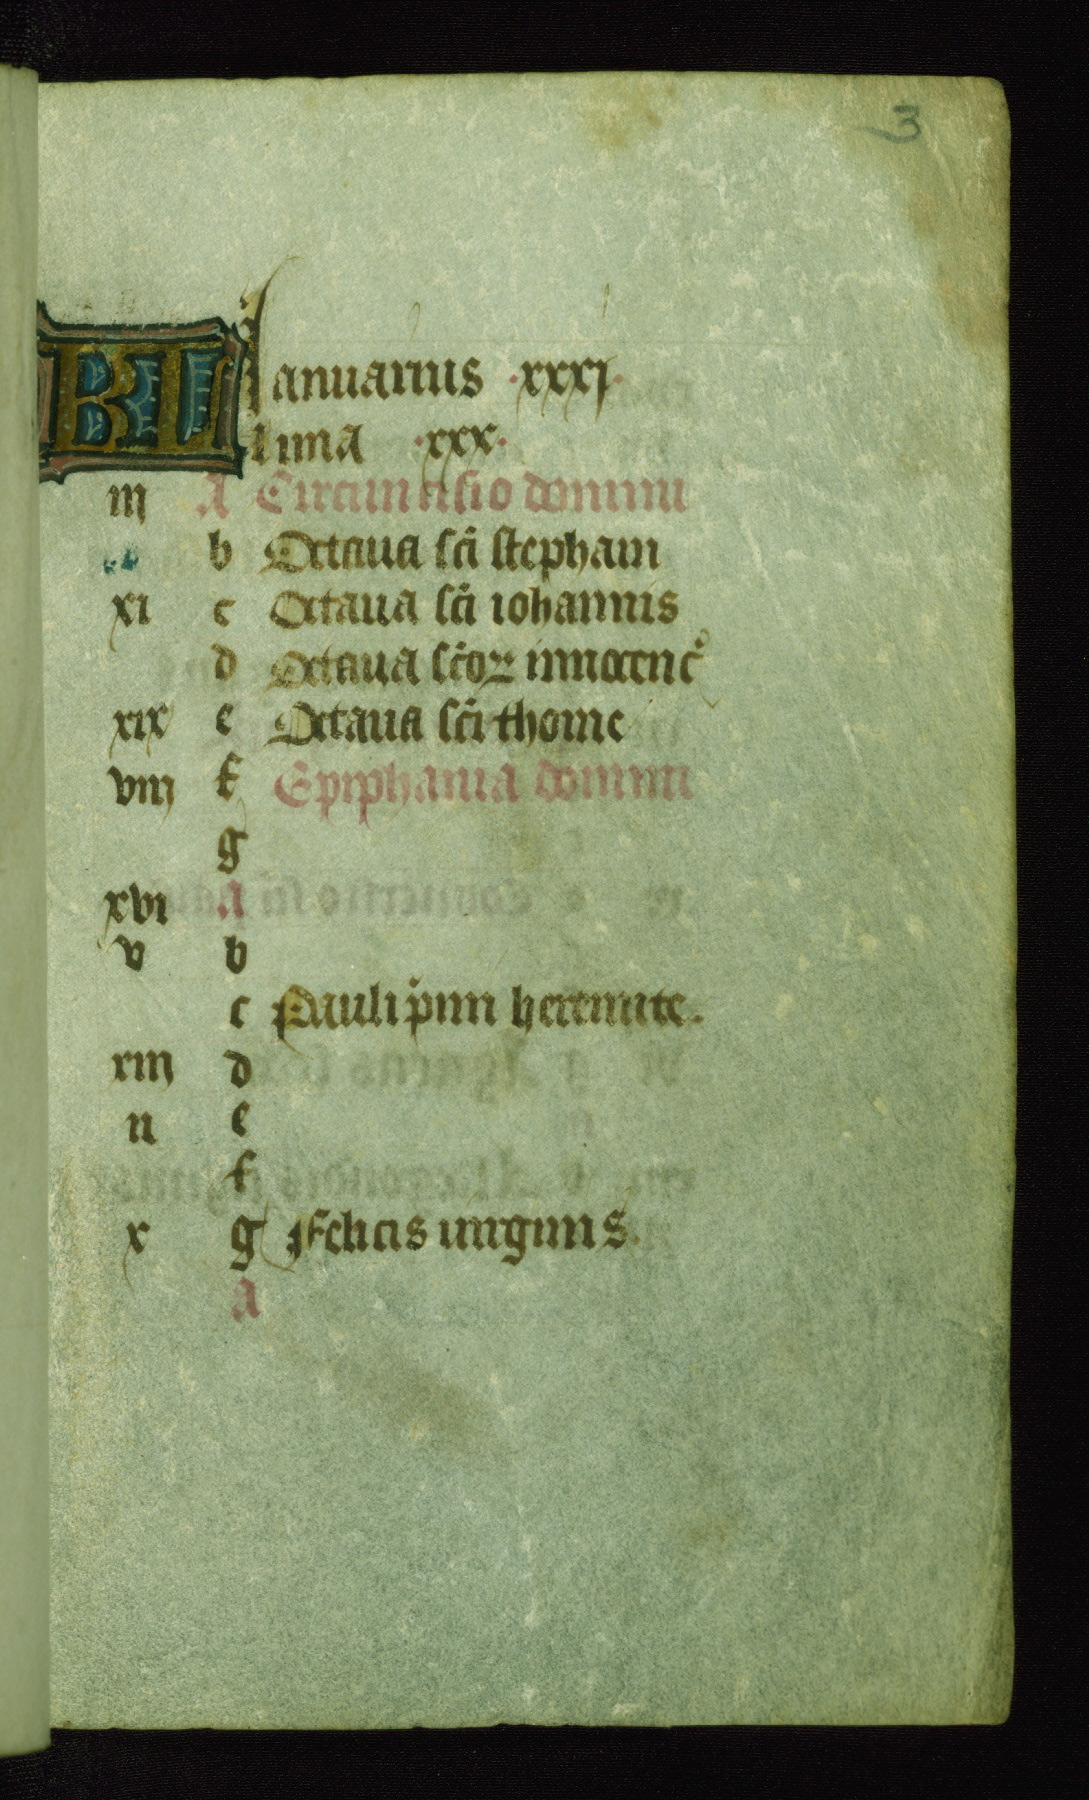 3
KL Januarius ·xxxj·
luna ·xxx·
iij A Circumcisio domini
b Octaua sc̄i stephani
xi c Octaua sc̄i iohannis
d Octaua sc̄oꝝ innocenc̄
xix e Octaua sc̄i thome
viij f Epiphania domini
g
xvi A
v b
c Pauli p̄mi heremite.
xiij d
ii e
f
x g Felicis uirginis.
A